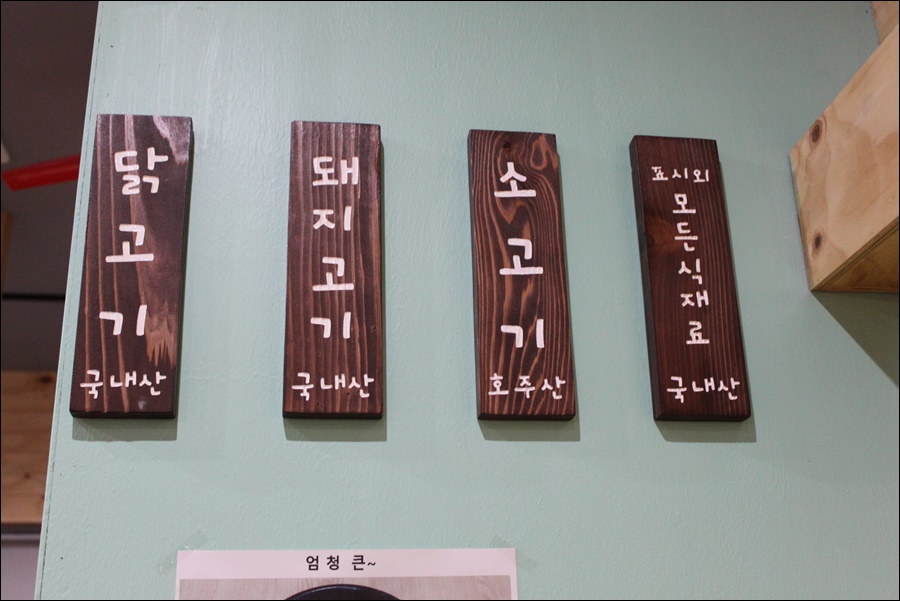 닭고기
국내산
돼지고기
국내산
소고기
호주산
표시외
모든식재료
국내산
엄청 큰~